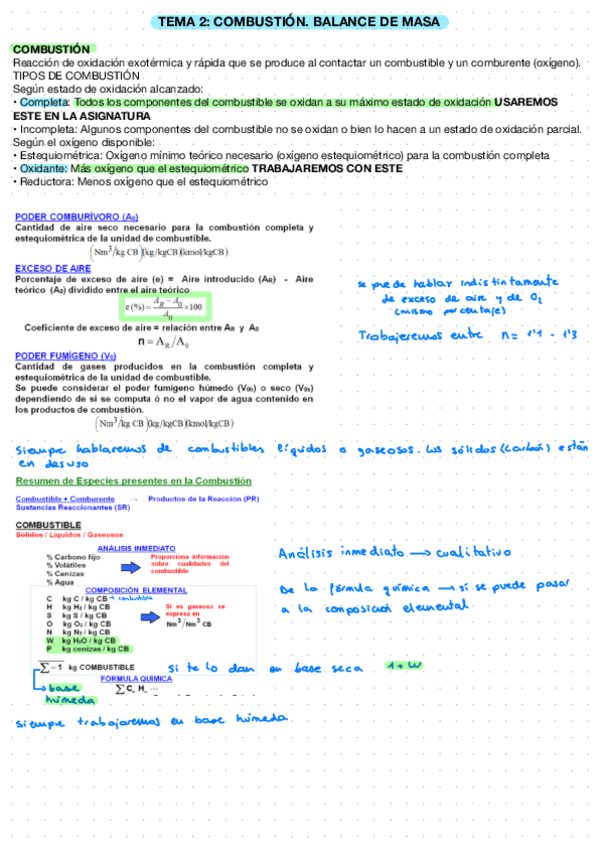 TEMA 2: COMBUSTIÓN. BALANCE DE MASA
COMBUSTIÓN
Reacción de oxidación exotérmica y rápida que se produce al contactar un combustible y un comburente (oxígeno).
TIPOS DE COMBUSTIÓN
Según estado de oxidación alcanzado:
• Completa: Todos los componentes del combustible se oxidan a su máximo estado de oxidación USAREMOS
ESTE EN LA ASIGNATURA
• Incompleta: Algunos componentes del combustible no se oxidan o bien lo hacen a un estado de oxidación parcial.
Según el oxígeno disponible:
• Estequiométrica: Oxígeno mínimo teórico necesario (oxígeno estequiométrico) para la combustión completa
• Oxidante: Más oxígeno que el estequiométrico TRABAJAREMOS CON ESTE
• Reductora: Menos oxígeno que el estequiométrico
PODER COMBURÍVORO (A₀)
Cantidad de aire seco necesario para la combustión completa y
estequiométrica de la unidad de combustible.
(Nm³/kg CB)(kg/kgCB)(kmol/kgCB)
EXCESO DE AIRE
Porcentaje de exceso de aire (e) = Aire introducido (AR) - Aire
teórico (A₀) dividido entre el aire teórico
e (%) = (AR − A₀)/A₀ ×100
Coeficiente de exceso de aire = relación entre AR y A₀
n = AR/A₀
se puede hablar indistintamente
de exceso de aire y de O₂
(mismo porcentaje)
Trabajeremos entre n = 1'1 - 1'3
PODER FUMÍGENO (V₀)
Cantidad de gases producidos en la combustión completa y
estequiométrica de la unidad de combustible.
Se puede considerar el poder fumígeno húmedo (V₀h) o seco (V₀s)
dependiendo de si se computa ó no el vapor de agua contenido en
los productos de combustión.
(Nm³/kg CB)(kg/kgCB)(kmol/kgCB)
siempre hablaremos de combustibles líquidos o gaseosos. Los sólidos (carbón) están
en desuso
Resumen de Especies presentes en la Combustión
Combustible + Comburente → Productos de la Reacción (PR)
Sustancias Reaccionantes (SR)
COMBUSTIBLE
Sólidos / Líquidos / Gaseosos
ANÁLISIS INMEDIATO
% Carbono fijo
% Volátiles
% Cenizas
% Agua
Proporciona información
sobre cualidades del
combustible
Análisis inmediato → cualitativo
COMPOSICIÓN ELEMENTAL
C kg C / kg CB → combustible
H kg H₂ / kg CB
S kg S / kg CB
O kg O₂ / kg CB
N kg N₂ / kg CB
W kg H₂O / kg CB
P kg cenizas / kg CB
Si es gaseoso se
expresa en
Nm³/Nm³ CB
De la fórmula química → si se puede pasar
a la composición elemental.
∑ = 1 kg COMBUSTIBLE
si te lo dan en base seca 1 + W
→ base
húmeda
FORMULA QUIMICA
∑ Cₙ Hₘ ...
siempre trabajaremos en base húmeda.